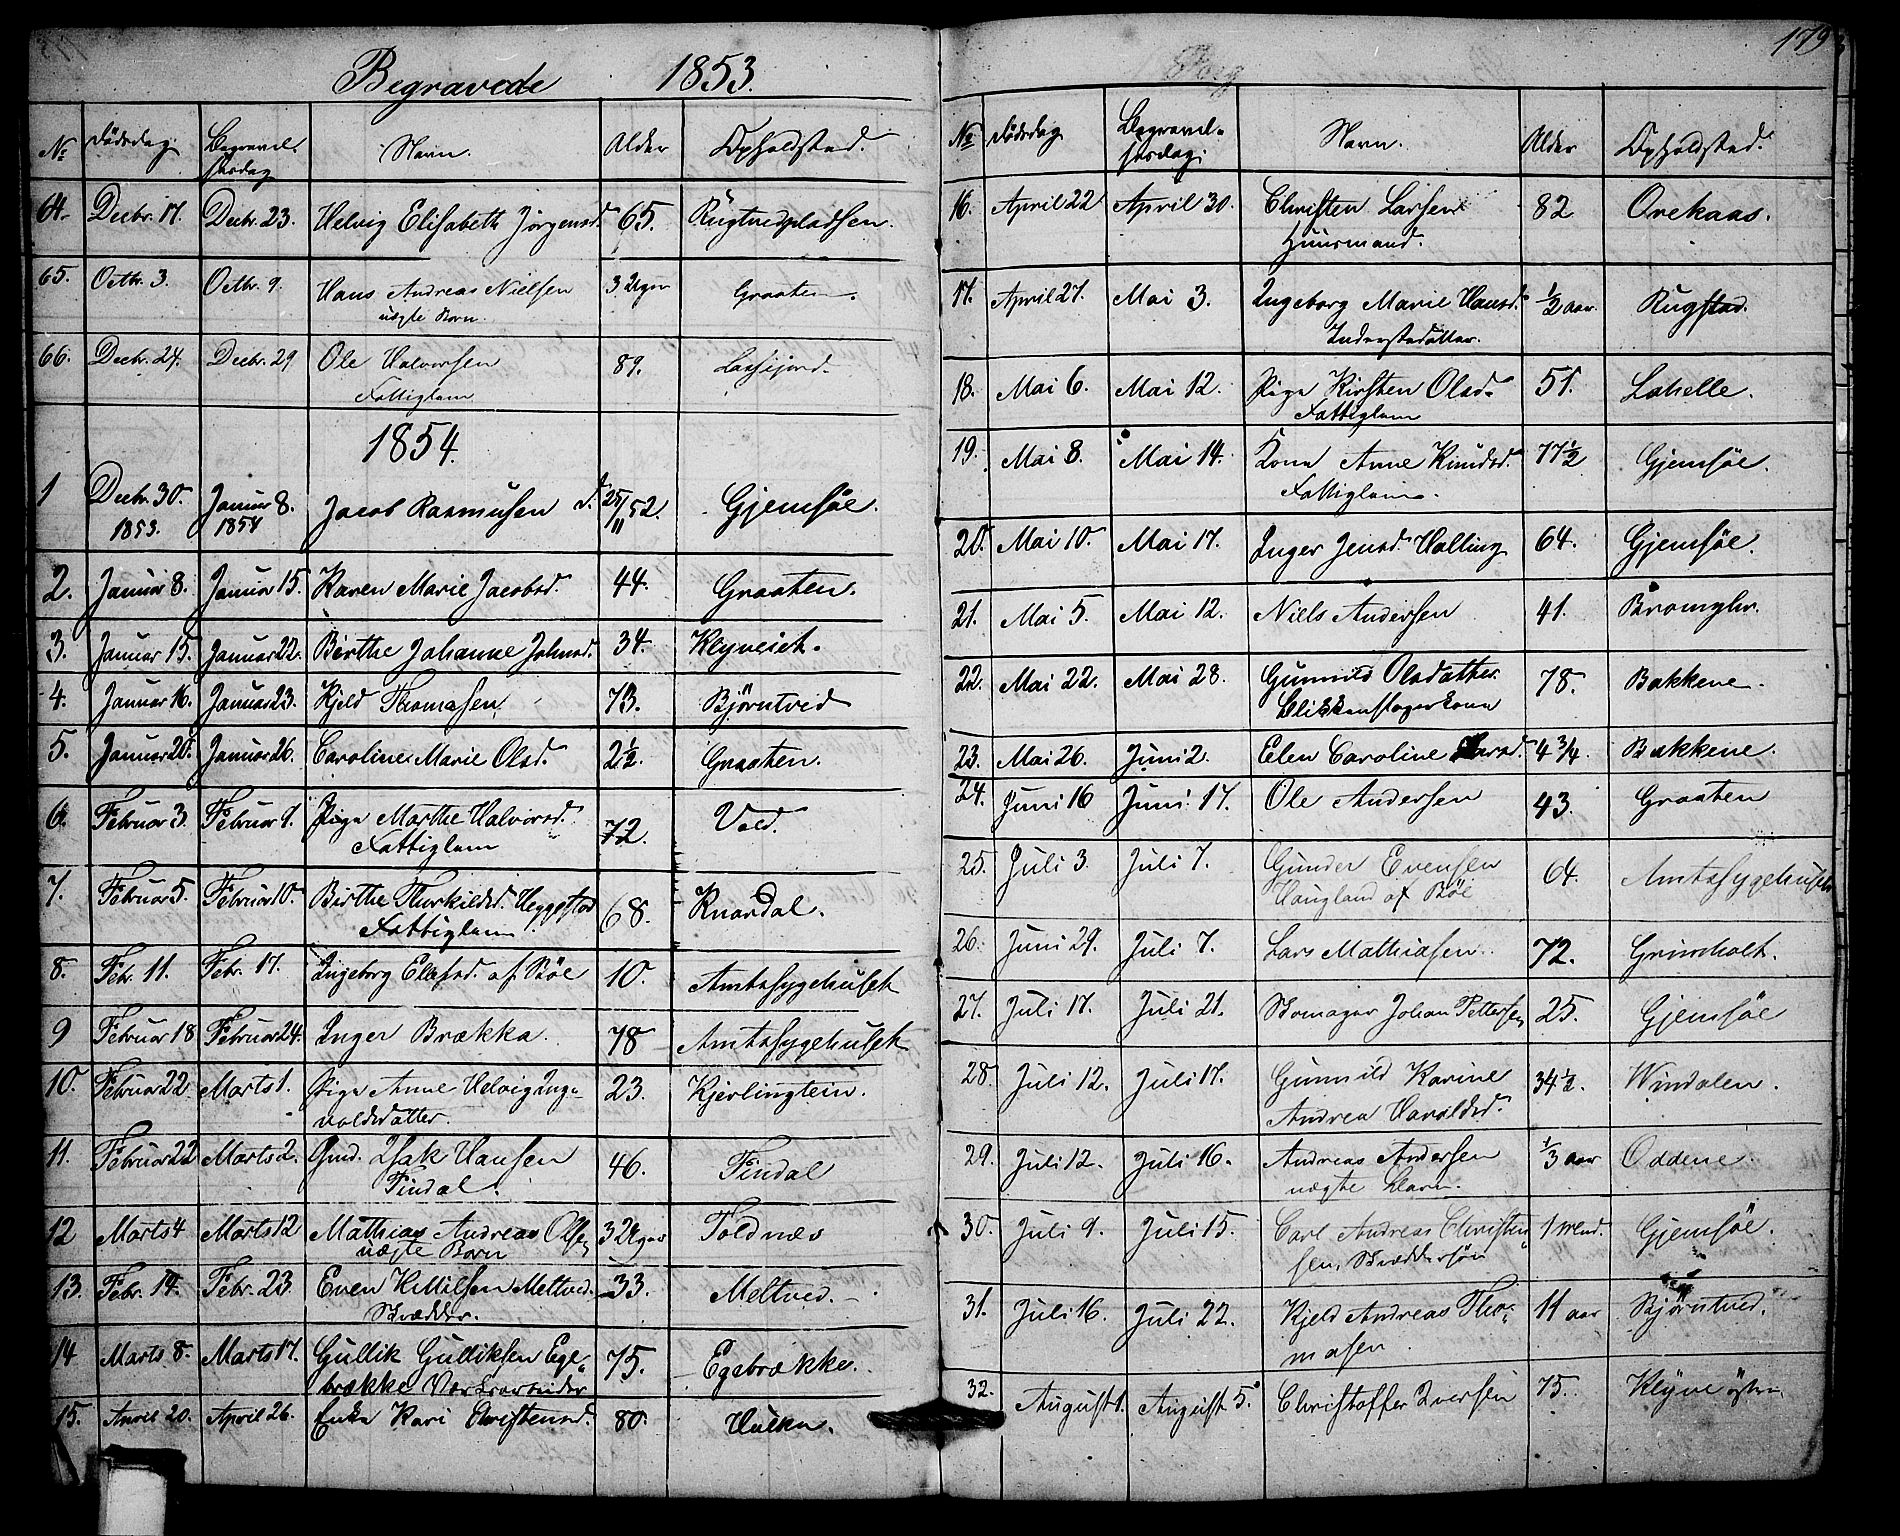 Begravede 1853.
No Dödsdag Begravel- Navn. Alder Opholdsted.
sesdag
64. Decbr. 17. Decbr. 23. Helvig Elisabeth Jörgensd. 65. Rugtvedpladsen.
65. Octbr. 3. Octbr. 9. Hans Andreas Nielsen 3 Uger Graaten.
uægte Barn.
66. Decbr. 24. Decbr. 29 Ole Halvorsen 89.
Fattiglem
1854.
1 Decbr. 30. Januar 8. Jacob Rasmusen d. 25/11 52. Gjemsöe.
1853. 1854
2. Januar 8. Januar 15. Karen Marie Jacobsd. 44. Graaten.
3. Januar 15. Januar 22. Birthe Johanne Johnsd. 34. Klyveiet.
4. Januar 16. Januar 23. Kjeld Thomasen 73. Björntved
5. Januar 20. Januar 26. Caroline Marie Olsd. 2½. Graaten.
6. Februar 3. Februar 9. Pige Marthe Halvorsd. 72. Vold.
Fattiglem
7. Februar 5. Februar 10. Birthe Thorkildsd. Heggestad 68. Knardal.
Fattiglem
8. Febr. 11. Febr. 17. Ingeborg Elefsd. af Böe 10. Amtssygehuset
9 Februar 18 Februar 24. Inger Brække. 78 Amtssygehuset
10. Februar 22. Marts 1. Pige Anne Helvig Ing- 23. Kjerlingtein.
valdsdatter.
11. Februar 22 Marts 2. Gmd. Isak Hansen 46. Findal
Findal.
12 Marts 4 Marts 12 Mathias Andreas Olsen 3 Uger Foldnæs
uægte Barn
13. Febr. 14. Febr. 23. Even Kittilsen Meltved. 33. Meltved.
Skrædder.
14 Marts 8. Marts 17. Gullik Gulliksen Ege- 75. Egebrække.
brække
15. April 20. April 26. Enke Kari Christensd. 80. Hulka.
179
No Dödsdag Begravel- Navn. Alder Opholdsted.
sesdag
16. April 22 April 30. Christen Larsen 82 Orekaas.
Huusmand.
17. April 27. Mai 3. Ingeborg Marie Hansd. ½ aar. Rugstad.
Inderstedatter.
18. Mai 6. Mai 12. Pige Kirsten Olsd. 51. Lahelle.
Fattiglem
19. Mai 8. Mai 14. Kone Anne Knudsd. 77½ Gjemsöe.
Fattiglem.
20. Mai 10. Mai 17. Inger Jensd. Halling 64. Gjemsöe.
21. Mai 5. Mai 12. Niels Andersen 41.
22. Mai 22. Mai 28. Gunnild Olsdatter 78. Bakkene.
Blikkenslagerkone
23. Mai 26. Juni 2. Elen Caroline 4 3/4 Bakkene.
24. Juni 16 Juni 17. Ole Andersen 43. Graaten
25. Juli 3. Juli 7. Gunder Evensen 64. Amtssygehuset
Haugland af Böe
26. Juni 29. Juli 7. Lars Mathiasen 72. Grinïholt.
27. Juli 17. Juli 21. Skomager Johan Pettersen 25. Gjemsöe
28. Juli 12. Juli 17. Gunnild Karine 34½. Windalen.
Andrea Haraldsd.
29. Juli 12. Juli 16. Andreas Andersen ⅓ aar Oddene.
uægte Barn.
30. Juli 9. Juli 15. Carl Andreas Christen- 1 mnd. Gjemsöe.
sen, Skræddersön
31. Juli 16. Juli 22. Kjeld Andreas Tho- 11 aar Björntved.
masen
32. August 1. August 5. Christoffer Iversen 75. Klyve